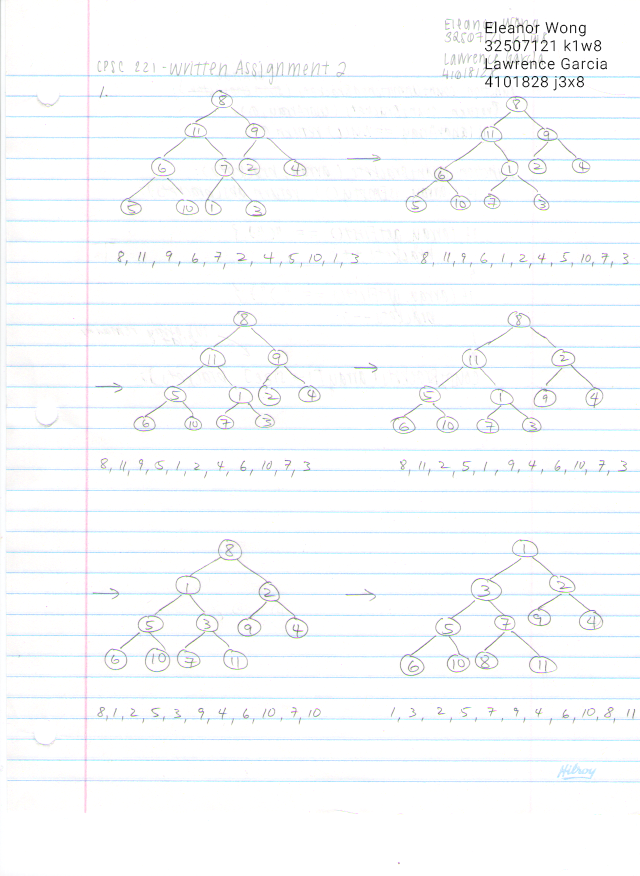 Eleanor Wong
32507121 k1w8
Lawrence Garcia
4101828 j3x8
CPSC 221 - Written Assignment 2
1.
8 8
11 9 11 9
6 7 2 4 6 1 2 4
5 10 1 3 5 10 7 3
8, 11, 9, 6, 7, 2, 4, 5, 10, 1, 3 8, 11, 9, 6, 1, 2, 4, 5, 10, 7, 3
8 8
11 9 11 2
5 1 2 4 5 1 9 4
6 10 7 3 6 10 7 3
8, 11, 9, 5, 1, 2, 4, 6, 10, 7, 3 8, 11, 2, 5, 1, 9, 4, 6, 10, 7, 3
8 1
1 2 3 2
5 3 9 4 5 7 9 4
6 10 7 11 6 10 8 11
8, 1, 2, 5, 3, 9, 4, 6, 10, 7, 10 1, 3, 2, 5, 7, 9, 4, 6, 10, 8, 11
Hilroy